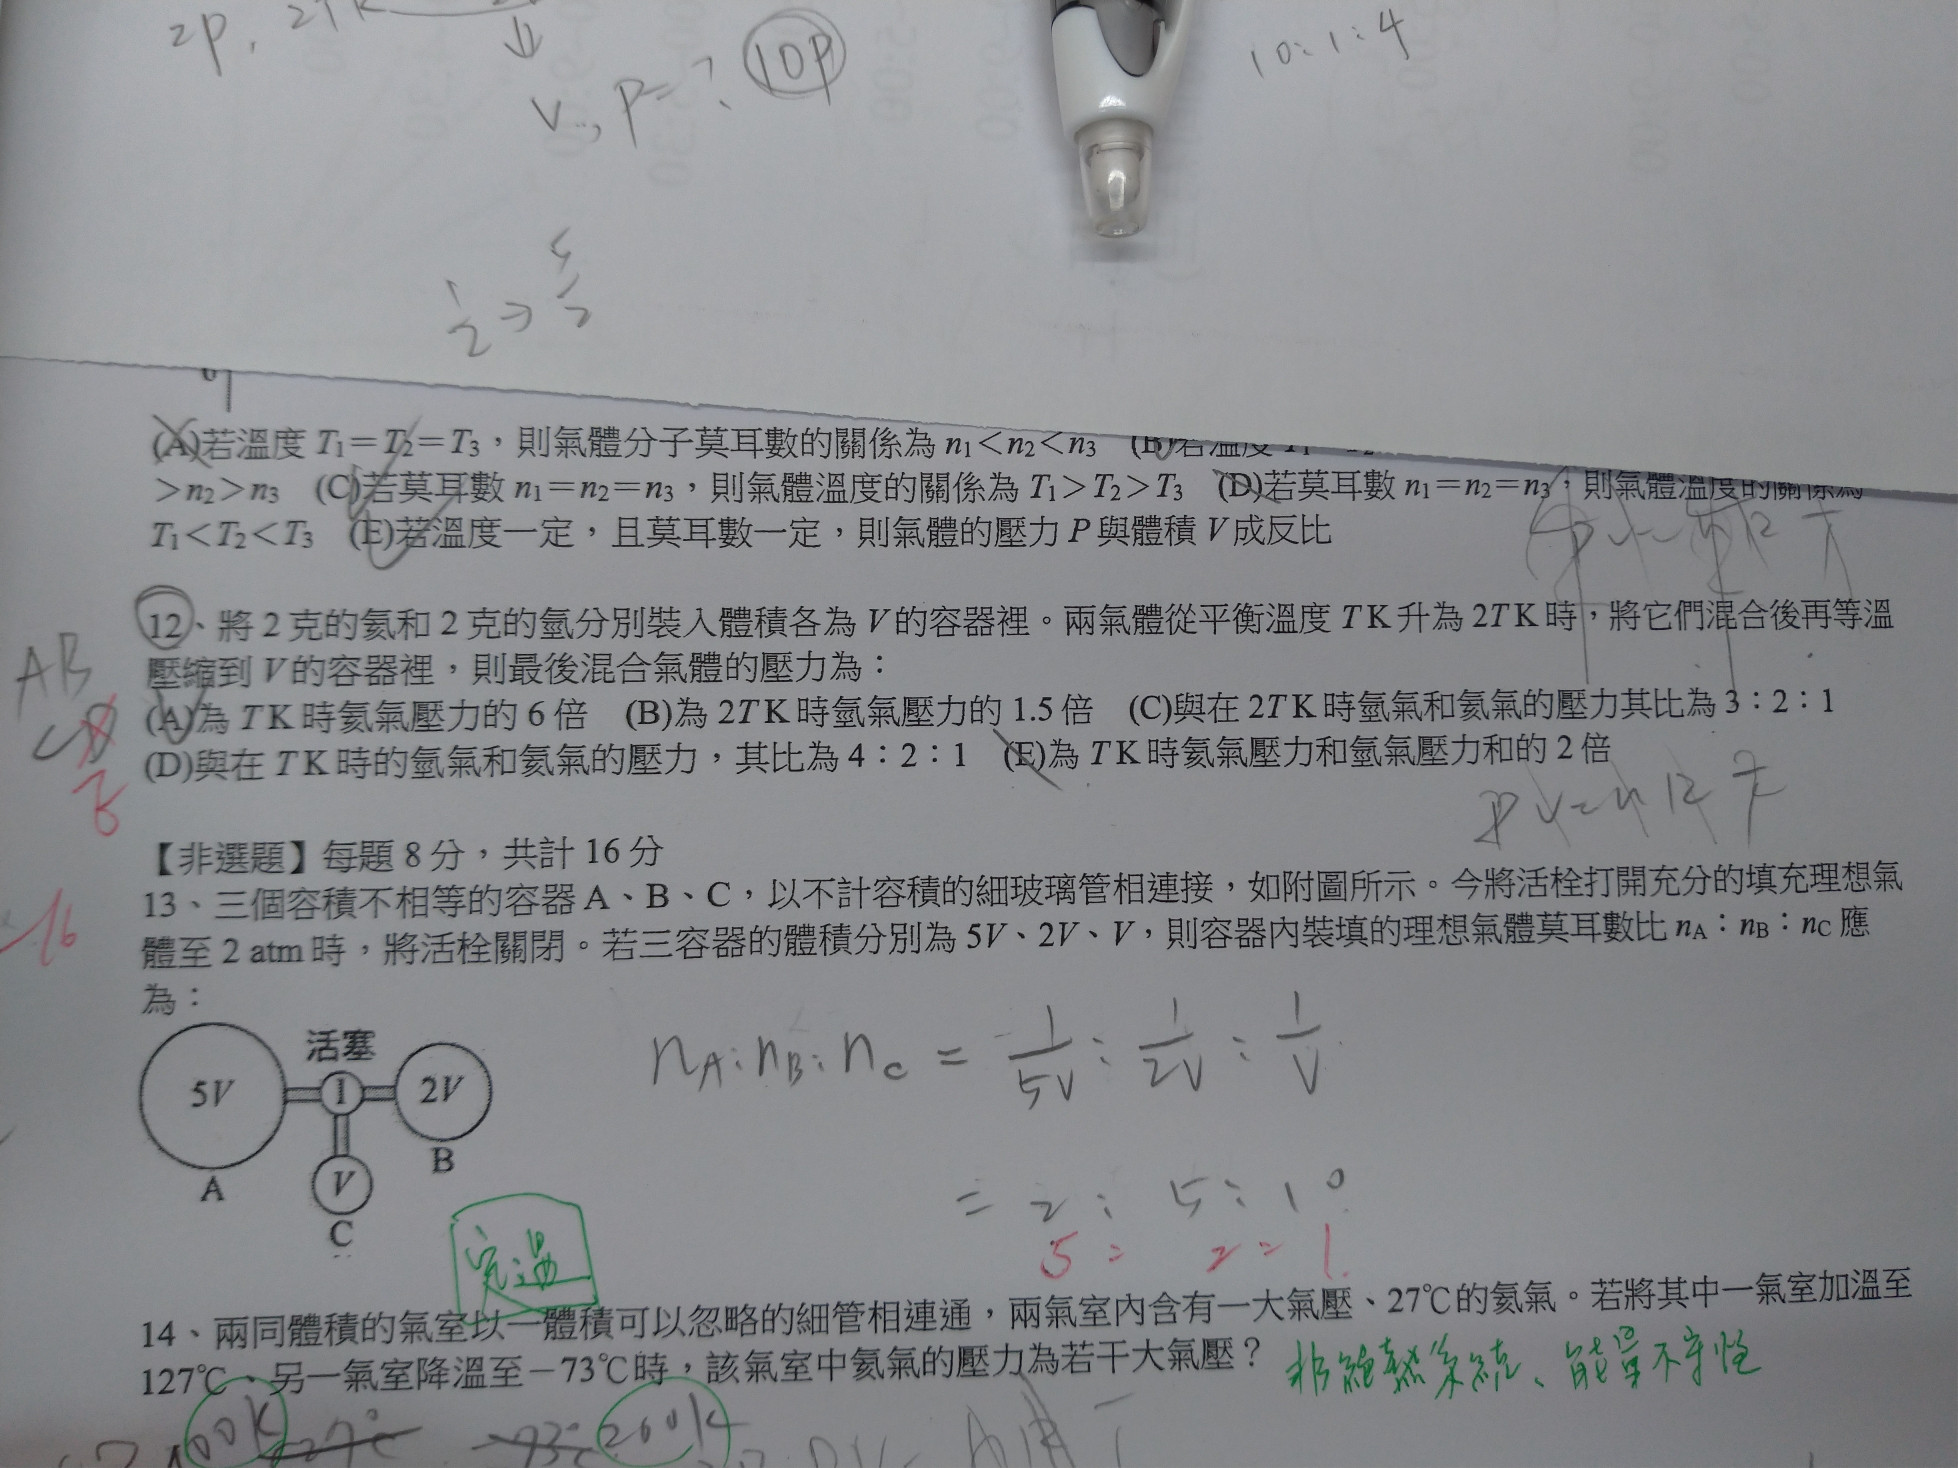 2P, 2TK
V, P=? 10P
10:1:4
1/2 → 5/2
(A)若溫度 T1=T2=T3，則氣體分子莫耳數的關係為 n1<n2<n3 (B)若溫度 T1
>n2>n3 (C)若莫耳數 n1=n2=n3，則氣體溫度的關係為 T1>T2>T3 (D)若莫耳數 n1=n2=n3，則氣體溫度的關係為
T1<T2<T3 (E)若溫度一定，且莫耳數一定，則氣體的壓力 P 與體積 V 成反比
12、將 2 克的氦和 2 克的氫分別裝入體積各為 V 的容器裡。兩氣體從平衡溫度 T K 升為 2T K 時，將它們混合後再等溫
壓縮到 V 的容器裡，則最後混合氣體的壓力為：
AB
(A)為 T K 時氦氣壓力的 6 倍 (B)為 2T K 時氫氣壓力的 1.5 倍 (C)與在 2T K 時氫氣和氦氣的壓力其比為 3：2：1
CD
(D)與在 T K 時的氫氣和氦氣的壓力，其比為 4：2：1 (E)為 T K 時氦氣壓力和氫氣壓力和的 2 倍
PV=nRT
【非選題】每題 8 分，共計 16 分
13、三個容積不相等的容器 A、B、C，以不計容積的細玻璃管相連接，如附圖所示。今將活栓打開充分的填充理想氣
-16
體至 2 atm 時，將活栓關閉。若三容器的體積分別為 5V、2V、V，則容器內裝填的理想氣體莫耳數比 nA：nB：nC 應
為：
活塞
5V
1
2V
A
B
V
C
nA:nB:nC = 1/5V : 1/2V : 1/V
= 2 : 5 : 10
5 : 2 : 1
定溫
14、兩同體積的氣室以一體積可以忽略的細管相連通，兩氣室內含有一大氣壓、27℃的氦氣。若將其中一氣室加溫至
127℃、另一氣室降溫至－73℃時，該氣室中氦氣的壓力為若干大氣壓？
非絕熱系統、能量不守恆
400K
200K